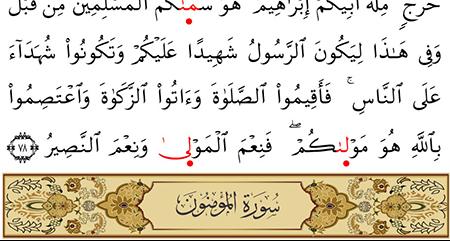 حَرَجٍ ۚ مِّلَّةَ أَبِيكُمْ إِبْرَٰهِيمَ ۚ هُوَ سَمَّىٰكُمُ ٱلْمُسْلِمِينَ مِن قَبْلُ
وَفِى هَـٰذَا لِيَكُونَ ٱلرَّسُولُ شَهِيدًا عَلَيْكُمْ وَتَكُونُوا۟ شُهَدَآءَ
عَلَى ٱلنَّاسِ ۚ فَأَقِيمُوا۟ ٱلصَّلَوٰةَ وَءَاتُوا۟ ٱلزَّكَوٰةَ وَٱعْتَصِمُوا۟
بِٱللَّهِ هُوَ مَوْلَىٰكُمْ ۖ فَنِعْمَ ٱلْمَوْلَىٰ وَنِعْمَ ٱلنَّصِيرُ ٧٨
سُورَةُ الْمُؤْمِنُونَ